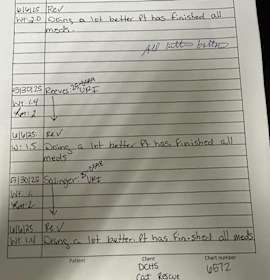 6/6/25 Rev
Wt: 2.0 Doing a lot better Pt has finished all
meds.
All better
5/30/25 Reeves URI
Wt: 1.4
6/6/25 Rev
Wt: 1.5 Doing a lot better Pt has finished all
meds
5/30/25 Salinger URI
6/6/25 Rev
Doing a lot better. Pt has finished all meds
Patient Client Chart number
DCHS 6572
Cat Rescue